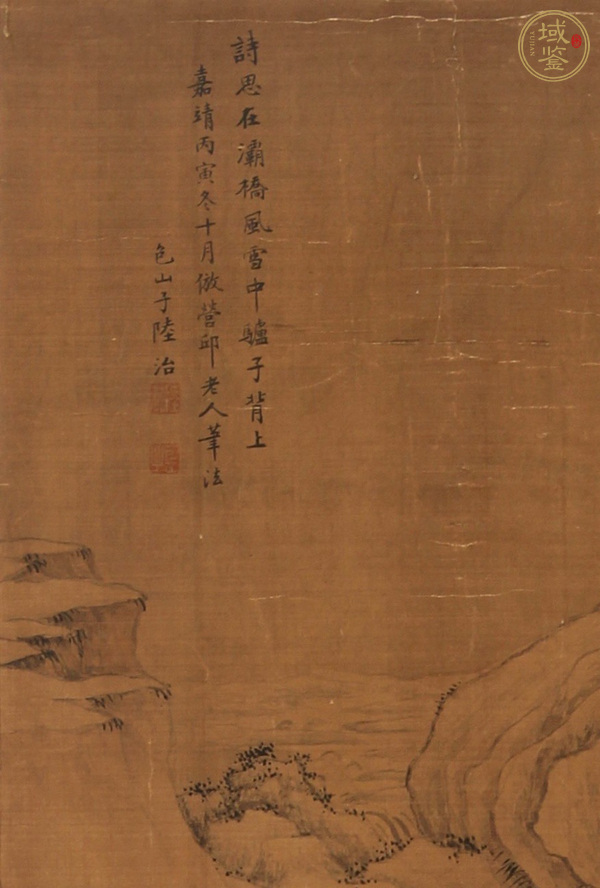 詩思在灞橋風雪中驢子背上
嘉靖丙寅冬十月倣營邱老人筆法
包山子陸治
域鉴
YUJIAN